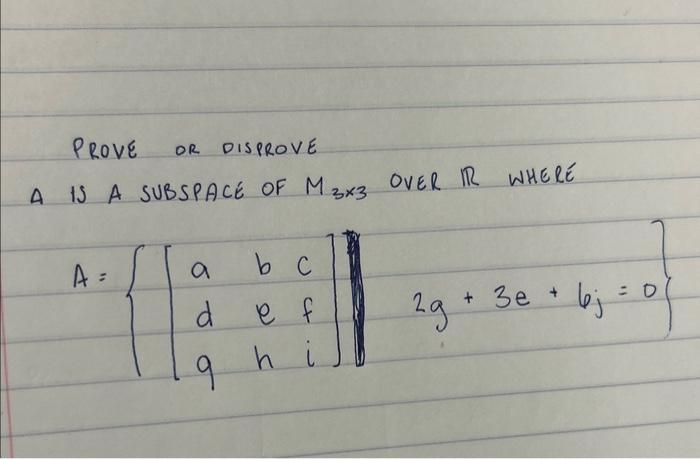 PROVE OR DISPROVE
A IS A SUBSPACE OF M3x3 OVER ℝ WHERE
A = { [ a b c
d e f
g h i ] | 2g + 3e + 6j = 0 }